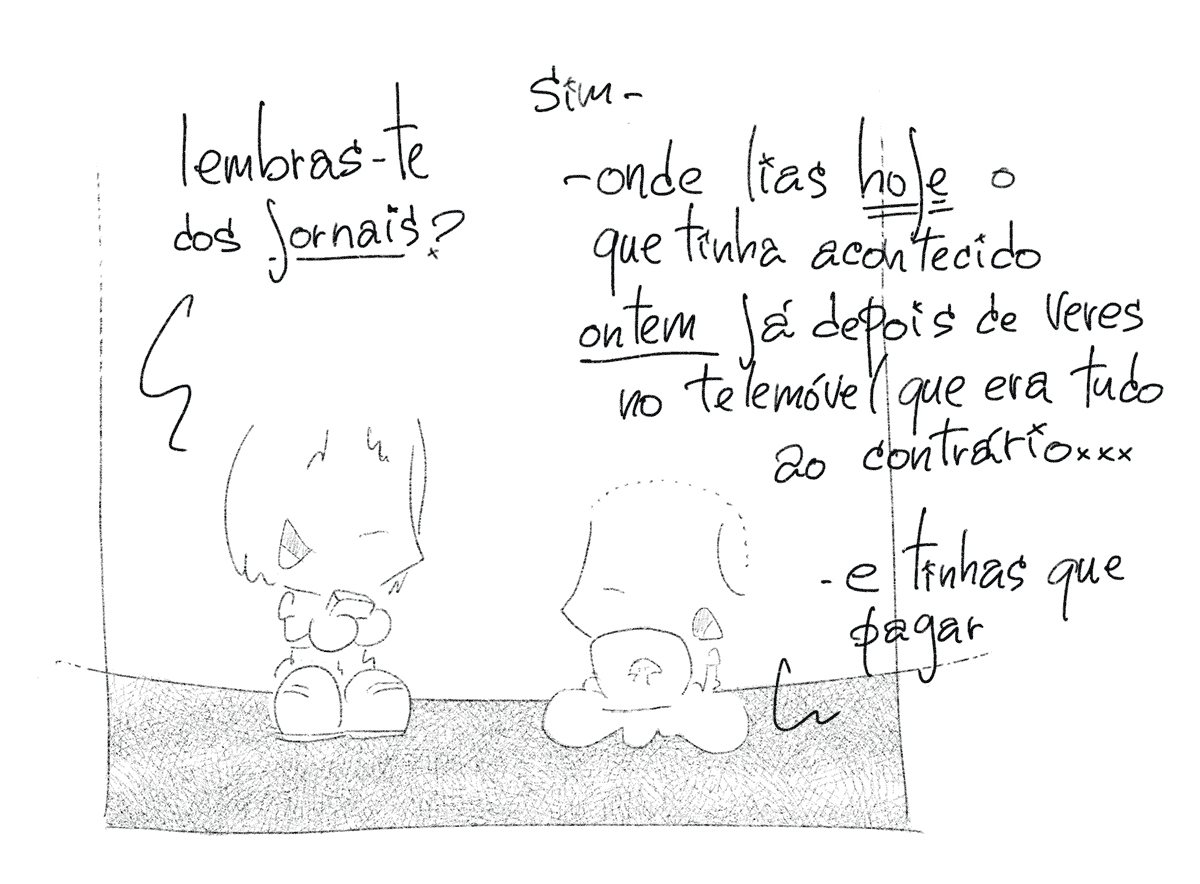 lembras-te
dos jornais?
sim-
-onde lias hoje o
que tinha acontecido
ontem já depois de veres
no telemóvel que era tudo
ao contrário...
-e tinhas que
pagar